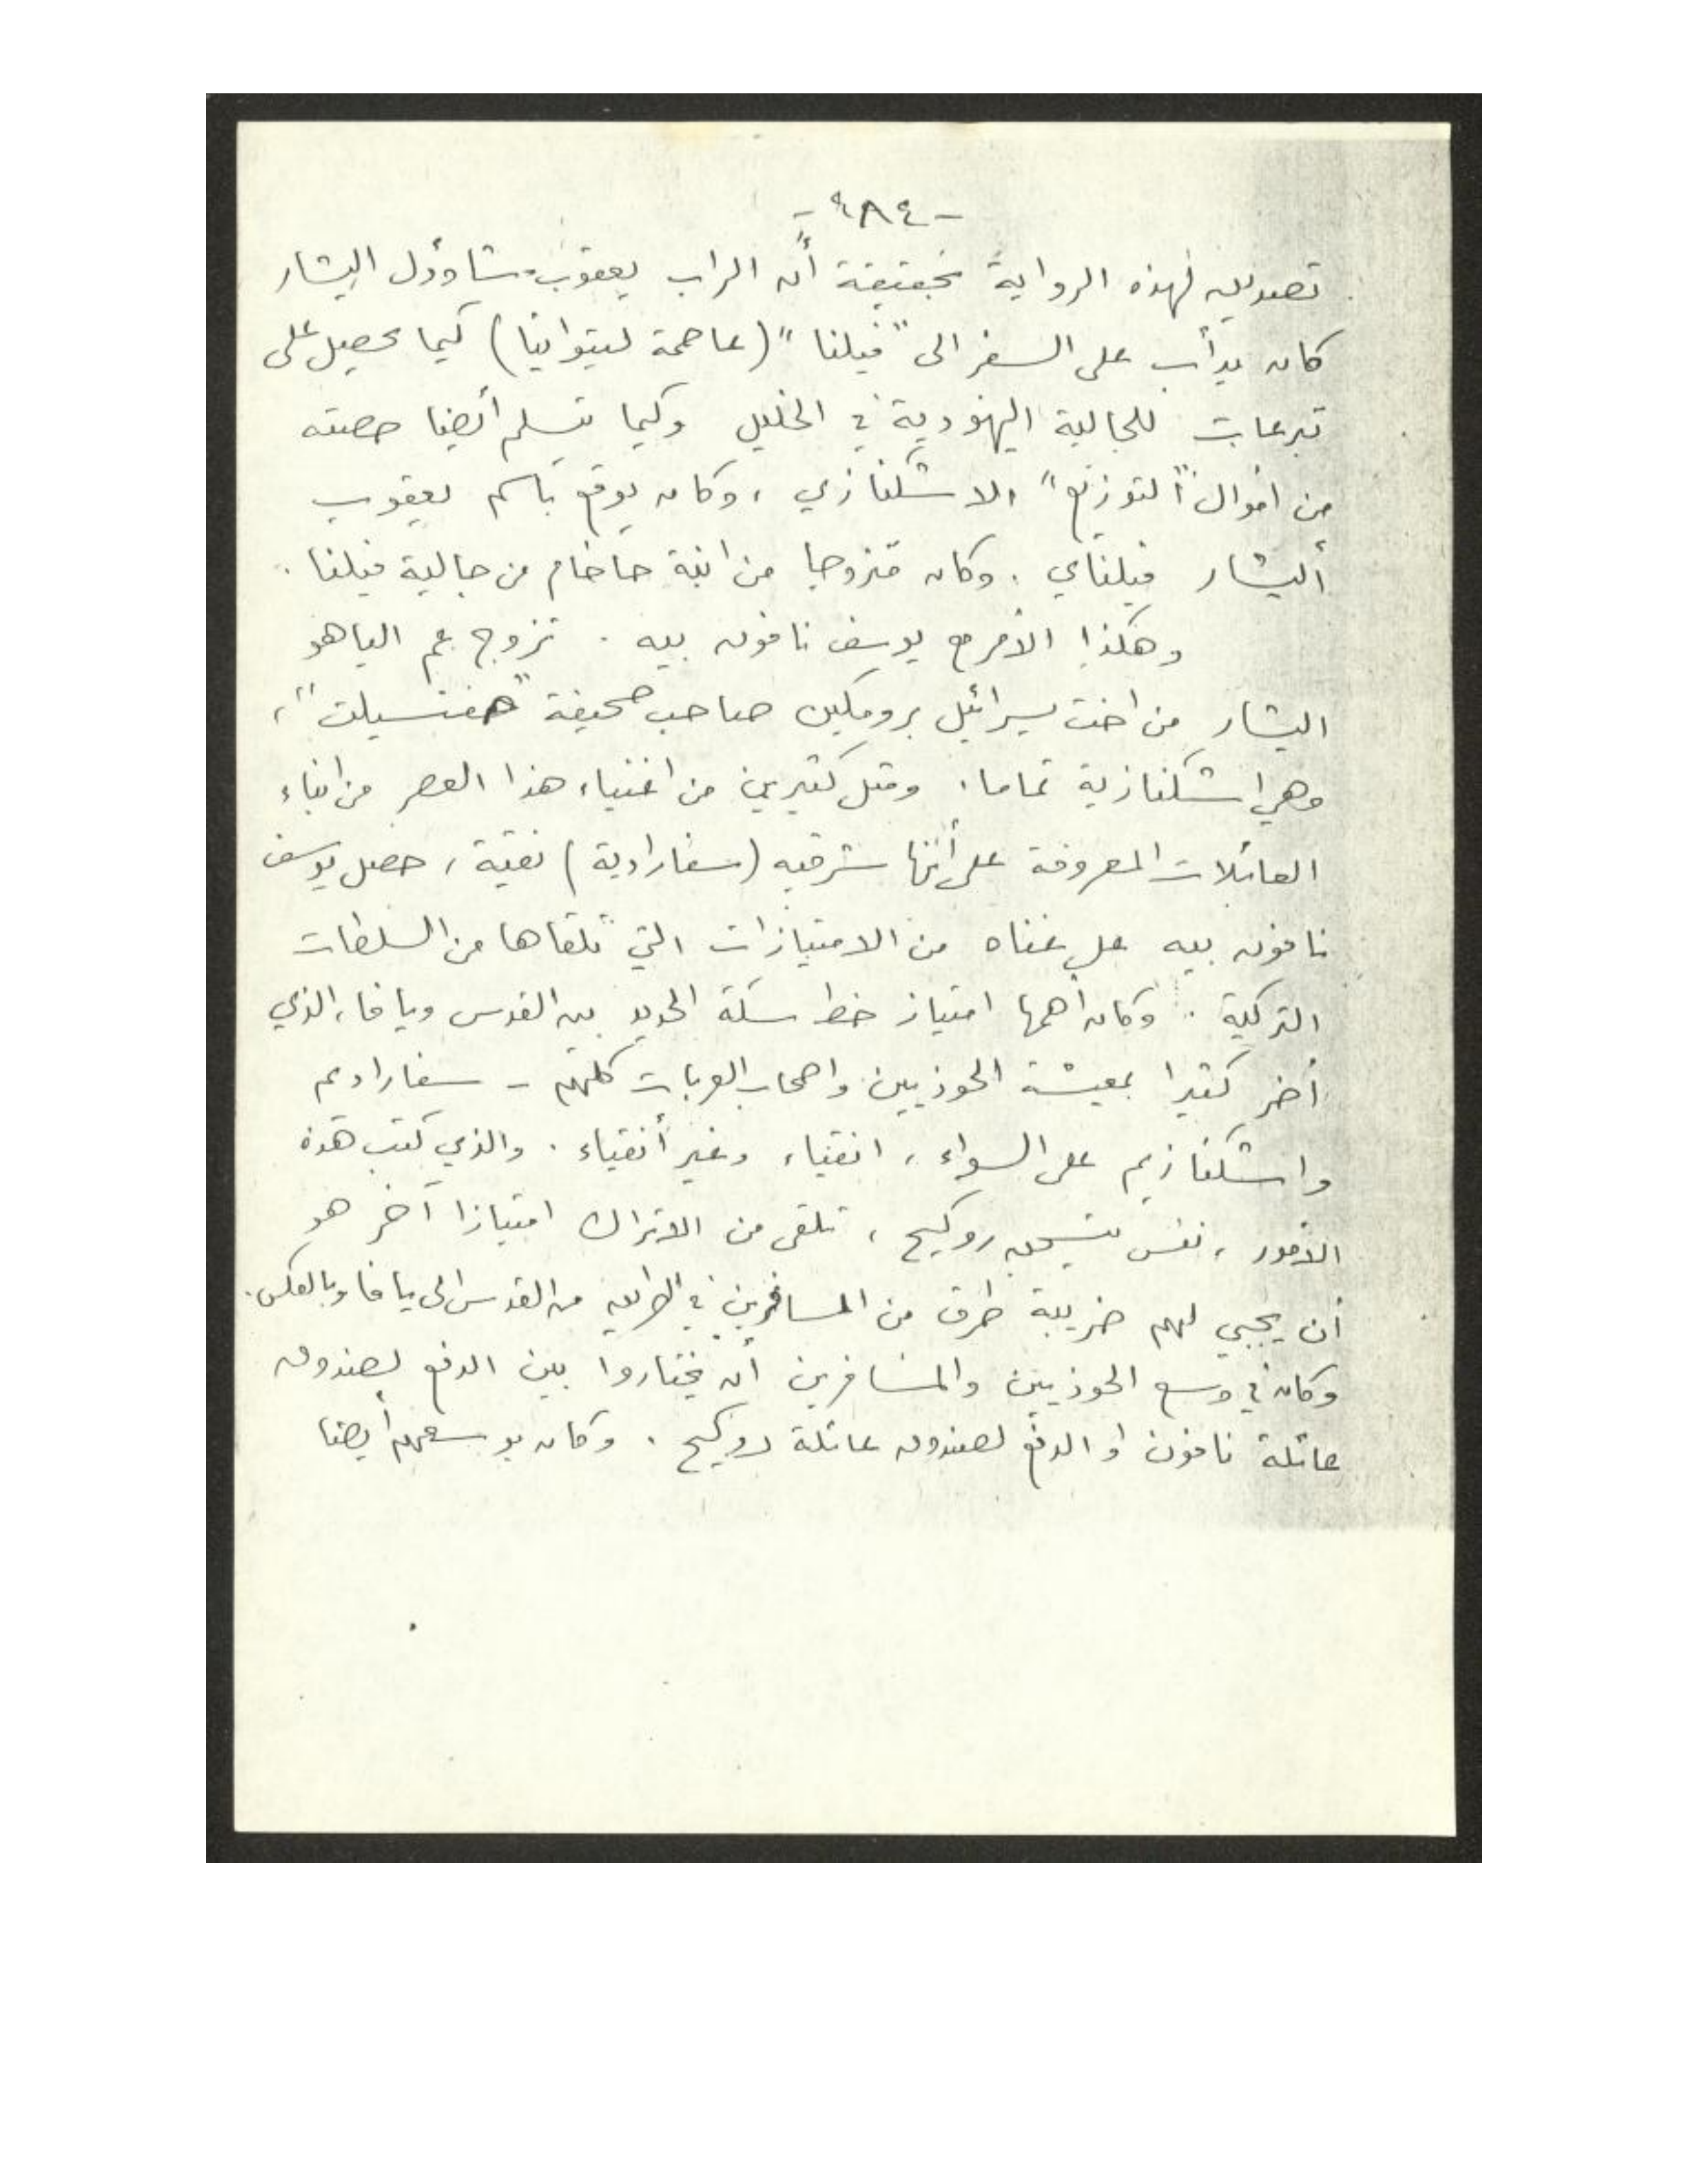 - ٤٨٤ -
تصديق لهذه الرواية بحقيقة أن الراب يعقوب شاؤول اليشار
كان يدأب على السفر الى "فيلنا" (عاصمة ليتوانيا) كيما يحصل على
تبرعات للجالية اليهودية في الخليل وكيما يتسلم أيضا حصته
من اموال "التوزيع" الاشكنازي ، وكان يوقع باسم يعقوب
أليشار فيلناي . وكان متزوجا من ابنة حاخام من جالية فيلنا .
وهكذا الأمر مع يوسف نافون بيه . تزوج عم الياهو
اليشار من اخت يسرائيل برومكين صاحب صحيفة "حفتسيلت" ،
وهي اشكنازية تماما . ومثل كثيرين من اغنياء هذا العصر من ابناء
العائلات المعروفة على أنها شرقيه (سفارادية) نقية ، حصل يوسف
نافون بيه على غناه من الامتيازات التي تلقاها من السلطات
التركية . وكان أهمها امتياز خط سكة الحديد بين القدس ويافا ، الذي
أضر كثيرا بمعيشة الحوذيين واصحاب العربات كلهم - سفاراديم
واشكنازيم على السواء ، انقياء وغير أنقياء . والذي كتب هذه
الأمور ، نفس يتسحق روكيح ، تلقى من الاتراك امتيازا آخر هو
أن يجبي لهم ضريبة طرق من المسافرين في الطريق من القدس الى يافا وبالعكس .
وكان في وسع الحوذيين والمسافرين أن يختاروا بين الدفع لصندوق
عائلة نافون او الدفع لصندوق عائلة روكيح . وكان بوسعهم أيضا